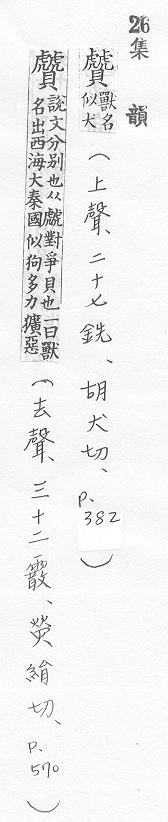 26 集韻
贙 獸名
似犬
(上聲、二十七銑、胡犬切、p.382)
贙 說文分別也从虤對爭貝也一曰獸
名出西海大秦國似狗多力獷惡
(去聲、三十二霰、熒絹切、p.570)